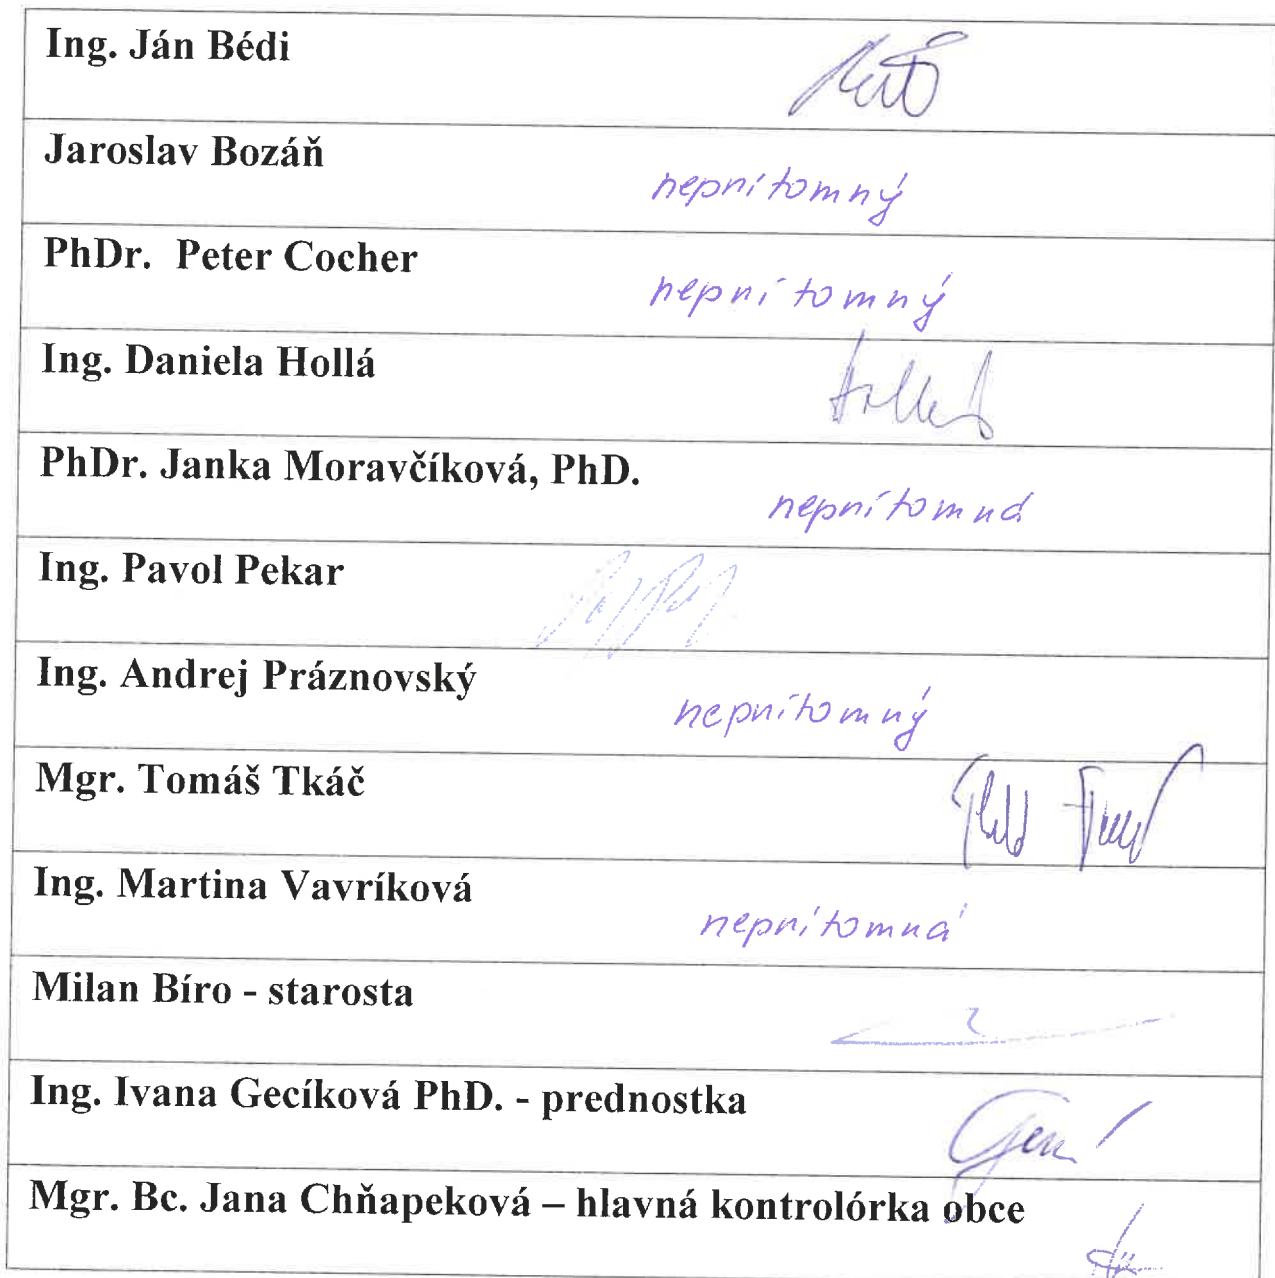 Ing. Ján Bédi
Jaroslav Bozáň
neprítomný
PhDr. Peter Cocher
neprítomný
Ing. Daniela Hollá
PhDr. Janka Moravčíková, PhD.
neprítomná
Ing. Pavol Pekar
Ing. Andrej Práznovský
neprítomný
Mgr. Tomáš Tkáč
Ing. Martina Vavríková
neprítomná
Milan Bíro - starosta
Ing. Ivana Gecíková PhD. - prednostka
Mgr. Bc. Jana Chňapeková – hlavná kontrolórka obce